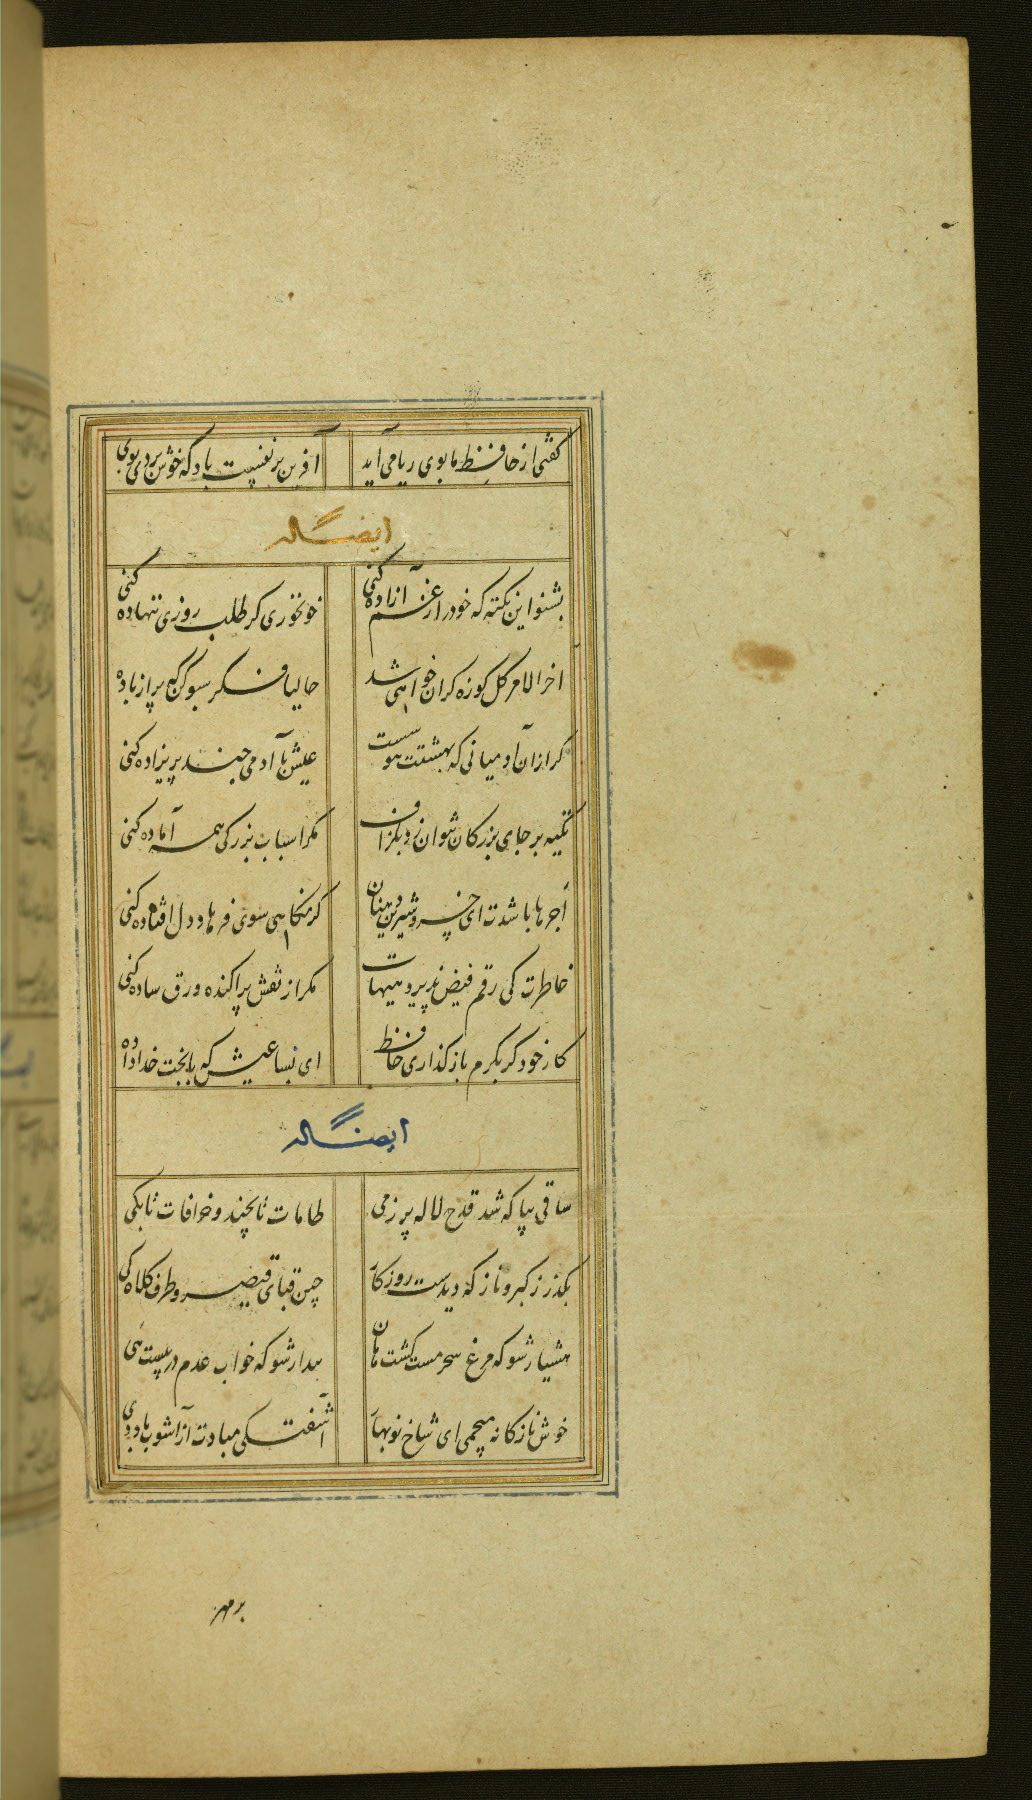 کفتی از حافظ ما بوی ریا می آید آفرین بر نفست باد که خوش بردی بوی
ایضاً له
بشنو این نکته که خود را ز غم آزاده کنی خون خوری کر طلب روزی ننهاده کنی
آخر الامر کل کوزه کران خواهی شد حالیا فکر سبو کن که پر از باده کنی
کر از آن آدمیانی که بهشتت هوست عیش با آدمی چند پریزاده کنی
تکیه بر جای بزرکان نتوان زد بکزاف مکر اسباب بزرکی همه آماده کنی
اجرها باشدت ای خسرو شیرین دهنان کر نکاهی سوی فرهاد دل افتاده کنی
خاطرت کی رقم فیض پذیرد هیهات مکر از نقش پراکنده ورق ساده کنی
کار خود کر بکرم باز کذاری حافظ ای بسا عیش که با بخت خداداده
ایضاً له
ساقی بیا که شد قدح لاله پر ز می طامات تا بچند و خرافات تا بکی
بکذر ز کبر و ناز که دیدست روزکار چین قبای قیصر و طرف کلاه کی
هشیار شو که مرغ سحر مست کشت هان بیدار شو که خواب عدم در پیست هی
خوش نازکانه میچمی ای شاخ نوبهار آشفتکی مبادت از آشوب باد دی
بر مهر